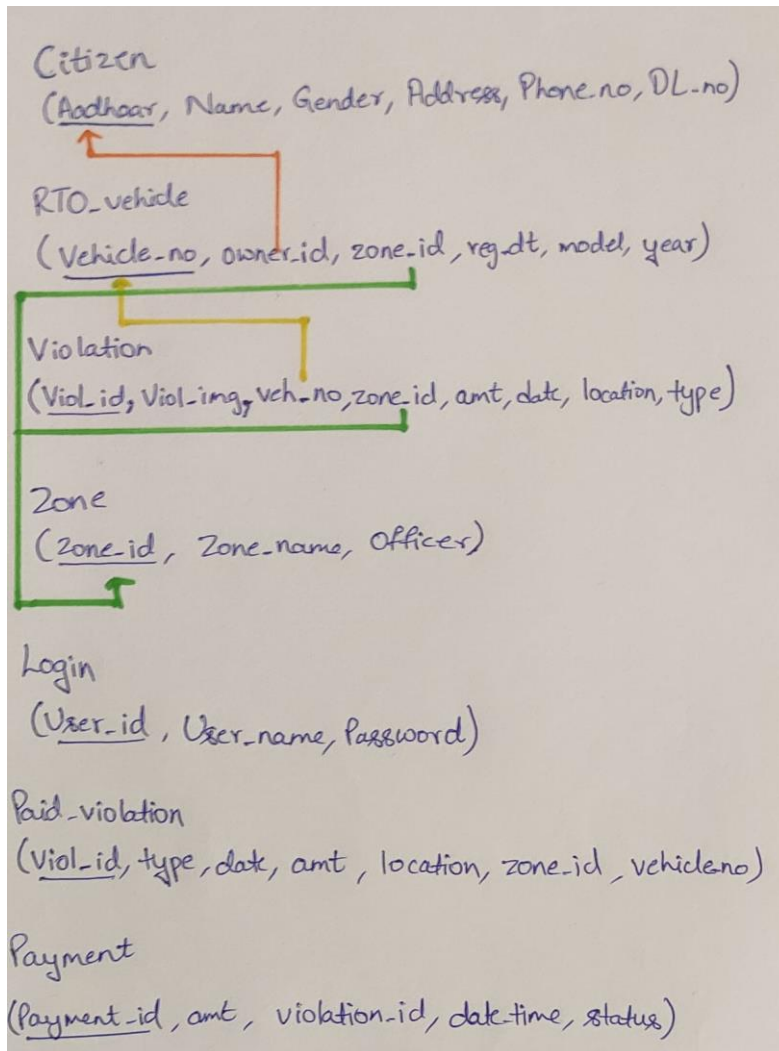 Citizen
(Aadhaar, Name, Gender, Address, Phone.no, DL-no)
RTO_vehicle
(Vehicle-no, owner-id, zone-id, reg-dt, model, year)
Violation
(Viol-id, Viol-img, veh-no, zone-id, amt, date, location, type)
Zone
(Zone-id, Zone-name, Officer)
Login
(User-id, User-name, Password)
Paid-violation
(Viol-id, type, date, amt, location, zone-id, vehicle-no)
Payment
(Payment-id, amt, violation-id, date-time, status)